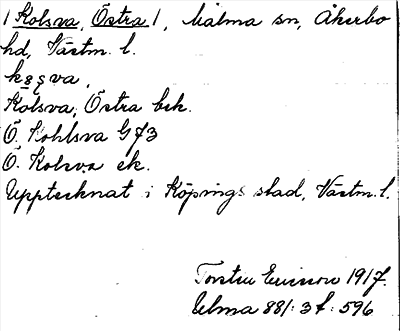 /Kolsva, Östra/, Malma sn, Åkerbo
hd, Västm. l.
Kolsva, Östra bsk.
Ö. Kohlsva G73
Ö. Kolsva ek.
Upptecknat i Köpings stad, Västm. l.
Torsten Ericsson 1917.
Ulma 881:3 f: 596